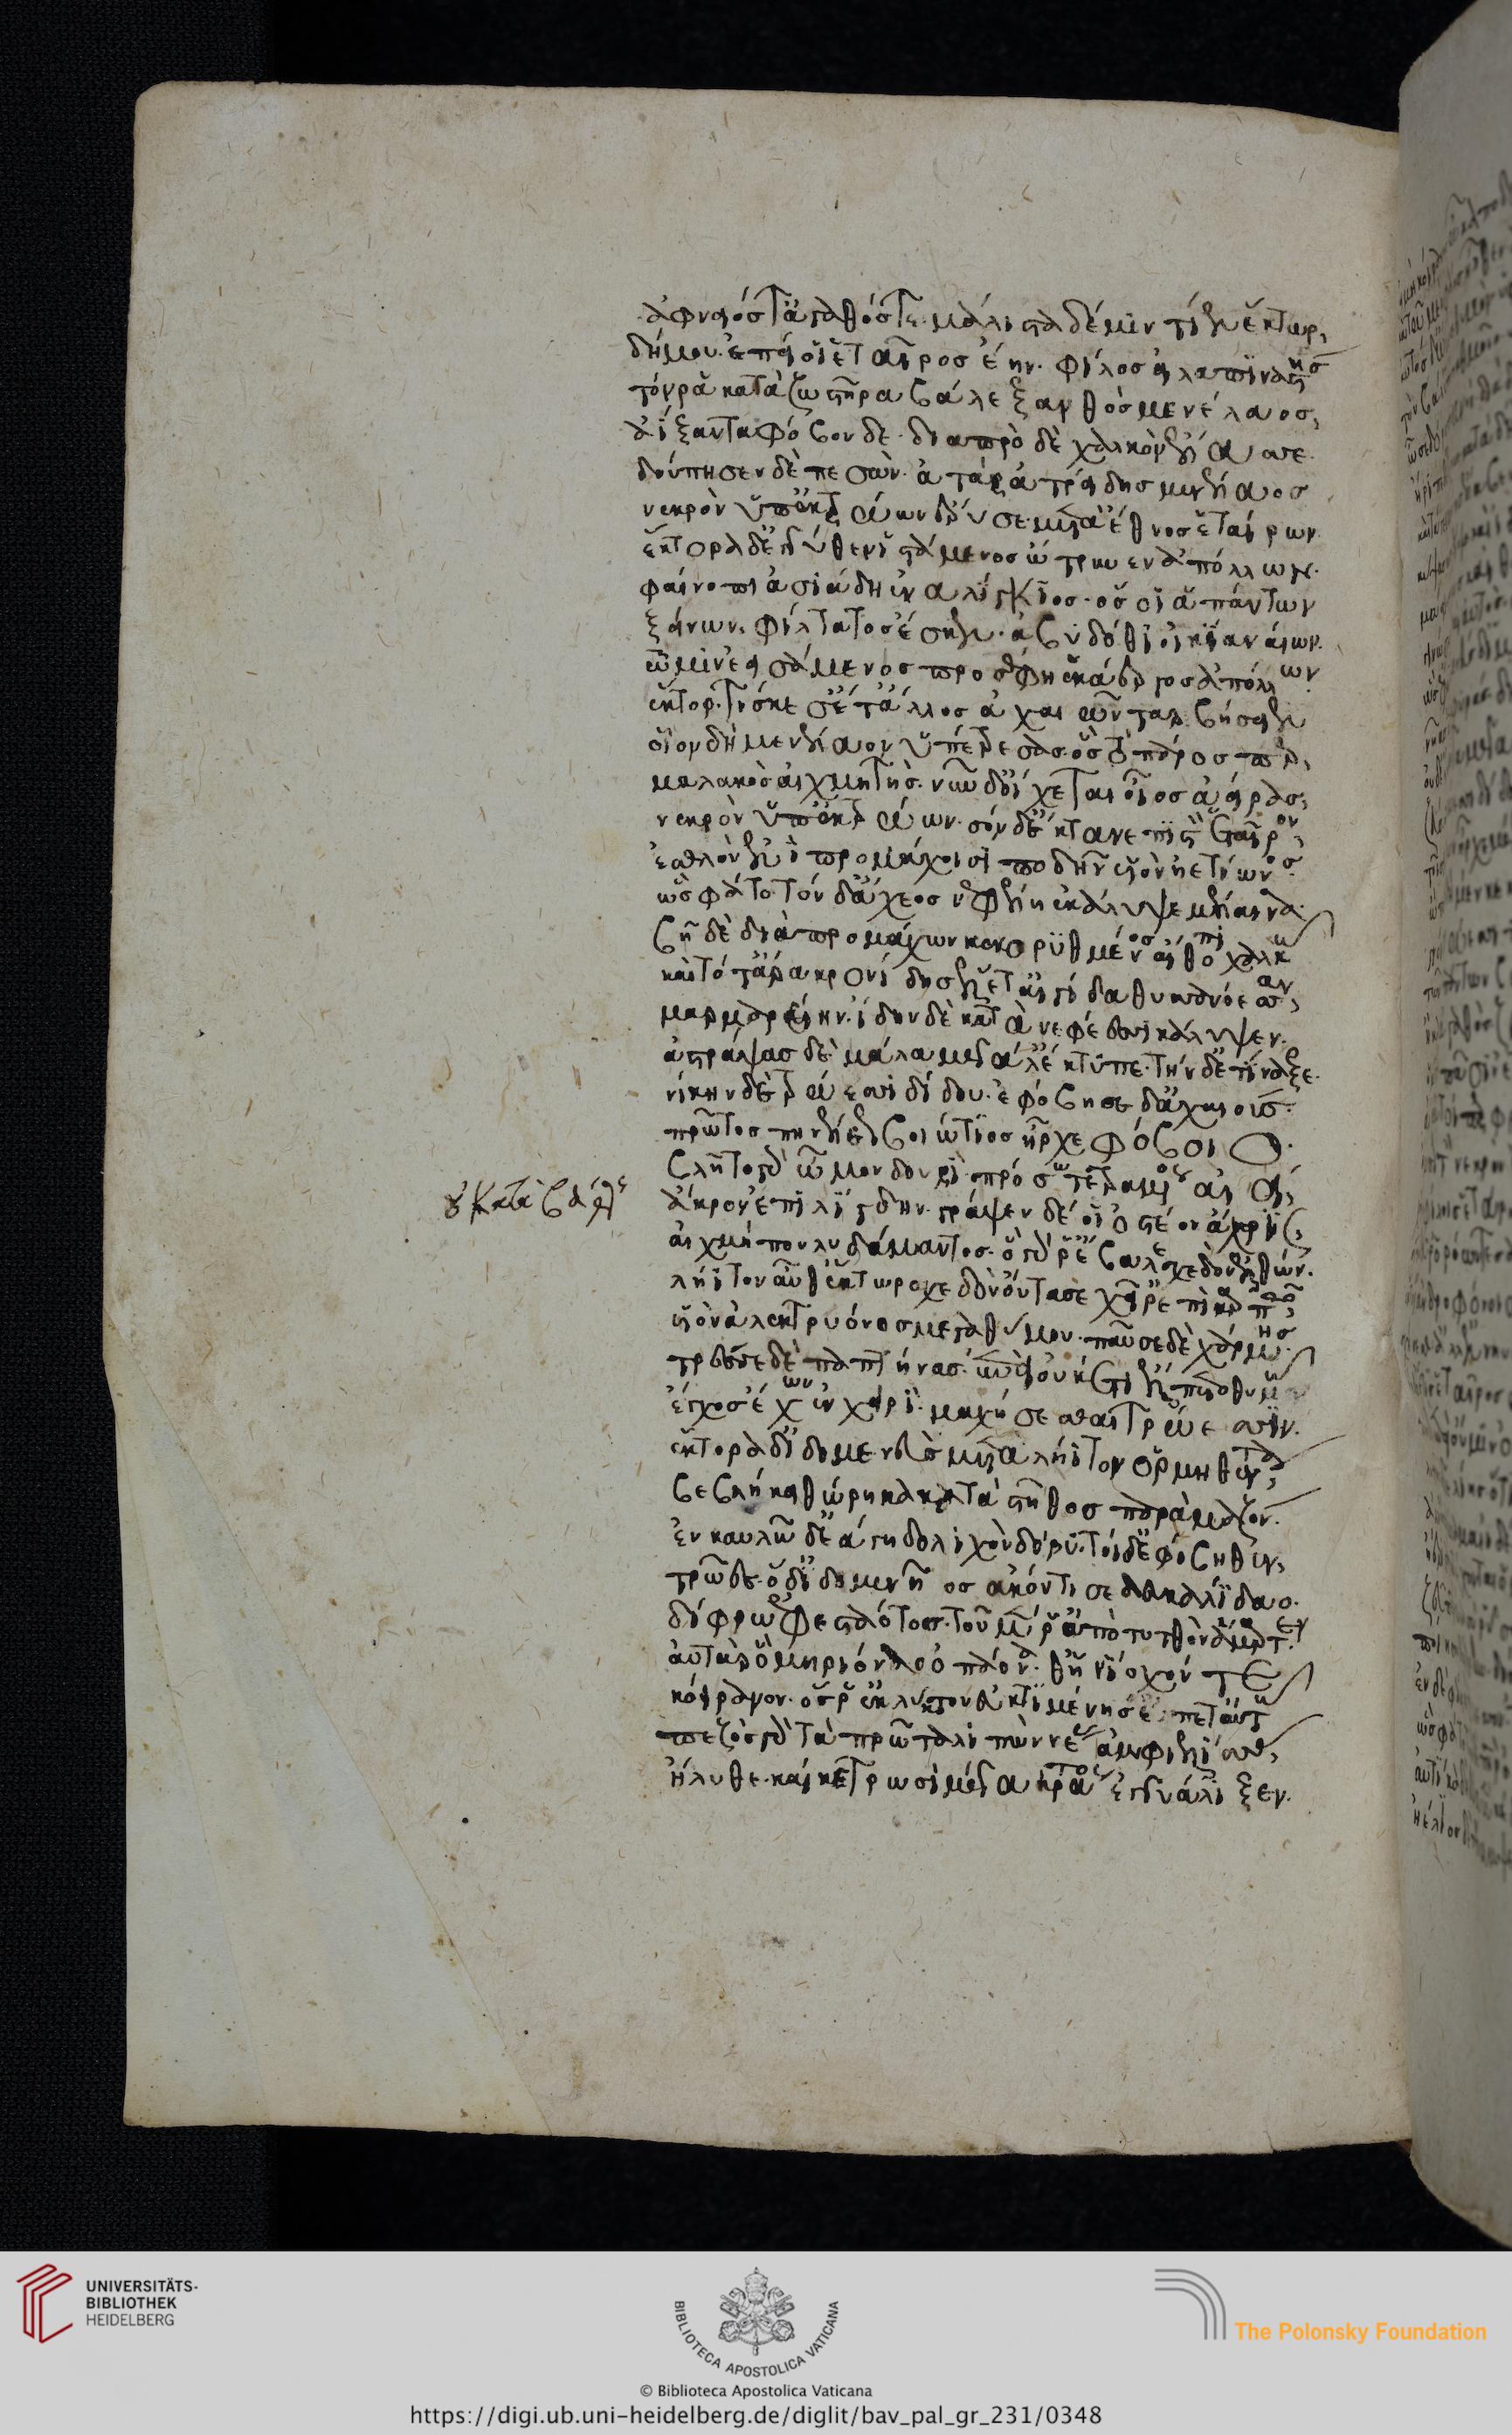 ἀφνειός τ' ἀγαθός τε· μάλιστα δέ μιν τίεν ἕκτωρ,
δήμου· ἐπεί οἱ ἑταῖρος ἔην· φίλος εἰλαπιναστής
τόν ῥα κατὰ ζωστῆρα βάλε ξανθὸς μενέλαος,
ἀΐξαντα φόβον δε· διαπρὸ δὲ χαλκὸν ἔλασσε·
δούπησεν δὲ πεσών· ἀτὰρ ἀτρείδης μενέλαος
νεκρὸν ὑπὲκ τρώων ἔρυσε· μετὰ ἔθνος ἑταίρων·
ἕκτορα δ' ἐγγύθεν ἱστάμενος ὤτρυνεν ἀπόλλων·
φαίνοπι ἀσιάδη ἐναλίγκιος· ὅς οἱ ἁπάντων
ξείνων· φίλτατος ἔσκεν· ἀβυδόθι οἰκία ναίων·
τῷ μιν ἐεισάμενος προσέφη ἑκάεργος ἀπόλλων·
ἕκτορ· τίς κέ σ' ἔτ' ἄλλος ἀχαιῶν ταρβήσειεν
οἷον δὴ μενέλαον ὑπέτρεσας· ὃς τὸ πάρος περ,
μαλακὸς αἰχμητής· νῦν δ' οἴχεται οἶος ἀείρας,
νεκρὸν ὑπὲκ τρώων· σὸν δ' ἔκτανε πιστὸν ἑταῖρον,
ἐσθλὸν ἐνὶ προμάχοισι ποδῆν υἱὸν ἠετίωνος·
ὣς φάτο· τὸν δ' ἄχεος νεφέλη ἐκάλυψε μέλαινα·
βῆ δὲ διὰ προμάχων κεκορυθμένος αἴθοπι χαλκῷ
καὶ τότ' ἄρα κρονίδης ἕλετ' αἰγίδα θυσσανόεσσαν,
μαρμαρέην· ἴδην δὲ κατὰ νεφέεσσι κάλυψεν·
ἀστράψας δὲ μάλα μεγάλ' ἔκτυπε· τὴν δ' ἐτίναξε·
νίκην δὲ τρώεσσι δίδου· ἐφόβησε δ' ἀχαιούς·
πρῶτος πηνέλεως βοιώτιος ἦρχε φόβοιο·
βλῆτο γὰρ ὦμον δουρὶ πρόσω τετραμμένος αἰεί,
ἄκρον ἐπιλίγδην· γράψεν δέ οἱ ὀστέον ἄχρις,
αἰχμὴ πουλυδάμαντος· ὃ γάρ ῥ' ἔβαλε σχεδὸν ἐλθών·
λήϊτον αὖθ' ἕκτωρ σχεδὸν οὔτασε χεῖρ' ἐπὶ καρπῷ,
υἱὸν ἀλεκτρυόνος μεγαθύμου· παῦσε δὲ χάρμης·
τρέσσε δὲ παπτήνας· ἐπεὶ οὐκέτι ἔλπετο θυμῷ
ἔγχος ἔχων ἐν χειρὶ μαχήσεσθαι τρώεσσιν·
ἕκτορα δ' ἰδομενεὺς μετὰ λήϊτον ὁρμηθέντα,
βεβλήκει θώρηκα κατὰ στῆθος παρὰ μαζόν·
ἐν καυλῷ δ' ἐάγη δολιχὸν δόρυ· τοὶ δ' ἐφόβηθεν,
τρῶες· ὃ δ' ἰδομενῆος ἀκόντισε δευκαλίδαο·
δίφρῳ ἐφεσταότος· τοῦ μέν ῥ' ἀπὸ τυτθὸν ἅμαρτεν·
αὐτὰρ ὃ μηριόναο ὀπάονά θ' ἡνίοχόν τε
κοίρανον· ὅς ῥ' ἐκ λύκτου ἐϋκτιμένης ἕπετ' αὐτῷ
πεζὸς γὰρ τὰ πρῶτα λιπὼν νέας ἀμφιελίσσας,
ἤλυθε· καί κε τρωσὶ μέγα κράτος ἐγγυάλιξεν·